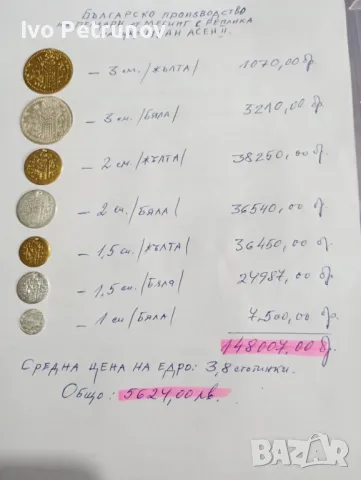 Българско производство
Ivo Petrunov
пендари от месинг с реплика
Иван Асен II
– 3 см./жълта/ 1070,00 бр.
– 3 см./бяла/ 3210,00 бр.
– 2 см./жълта/ 38250,00 бр.
– 2 см./бяла/ 36540,00 бр.
– 1,5 см./жълта/ 36450,00 бр.
– 1,5 см./бяла/ 24987,00 бр.
– 1 см/бяла/ 7,500,00 бр.
148007,00 бр.
Средна цена на едро: 3,8 стотинки.
Общо: 5624,00 лв.
bazar